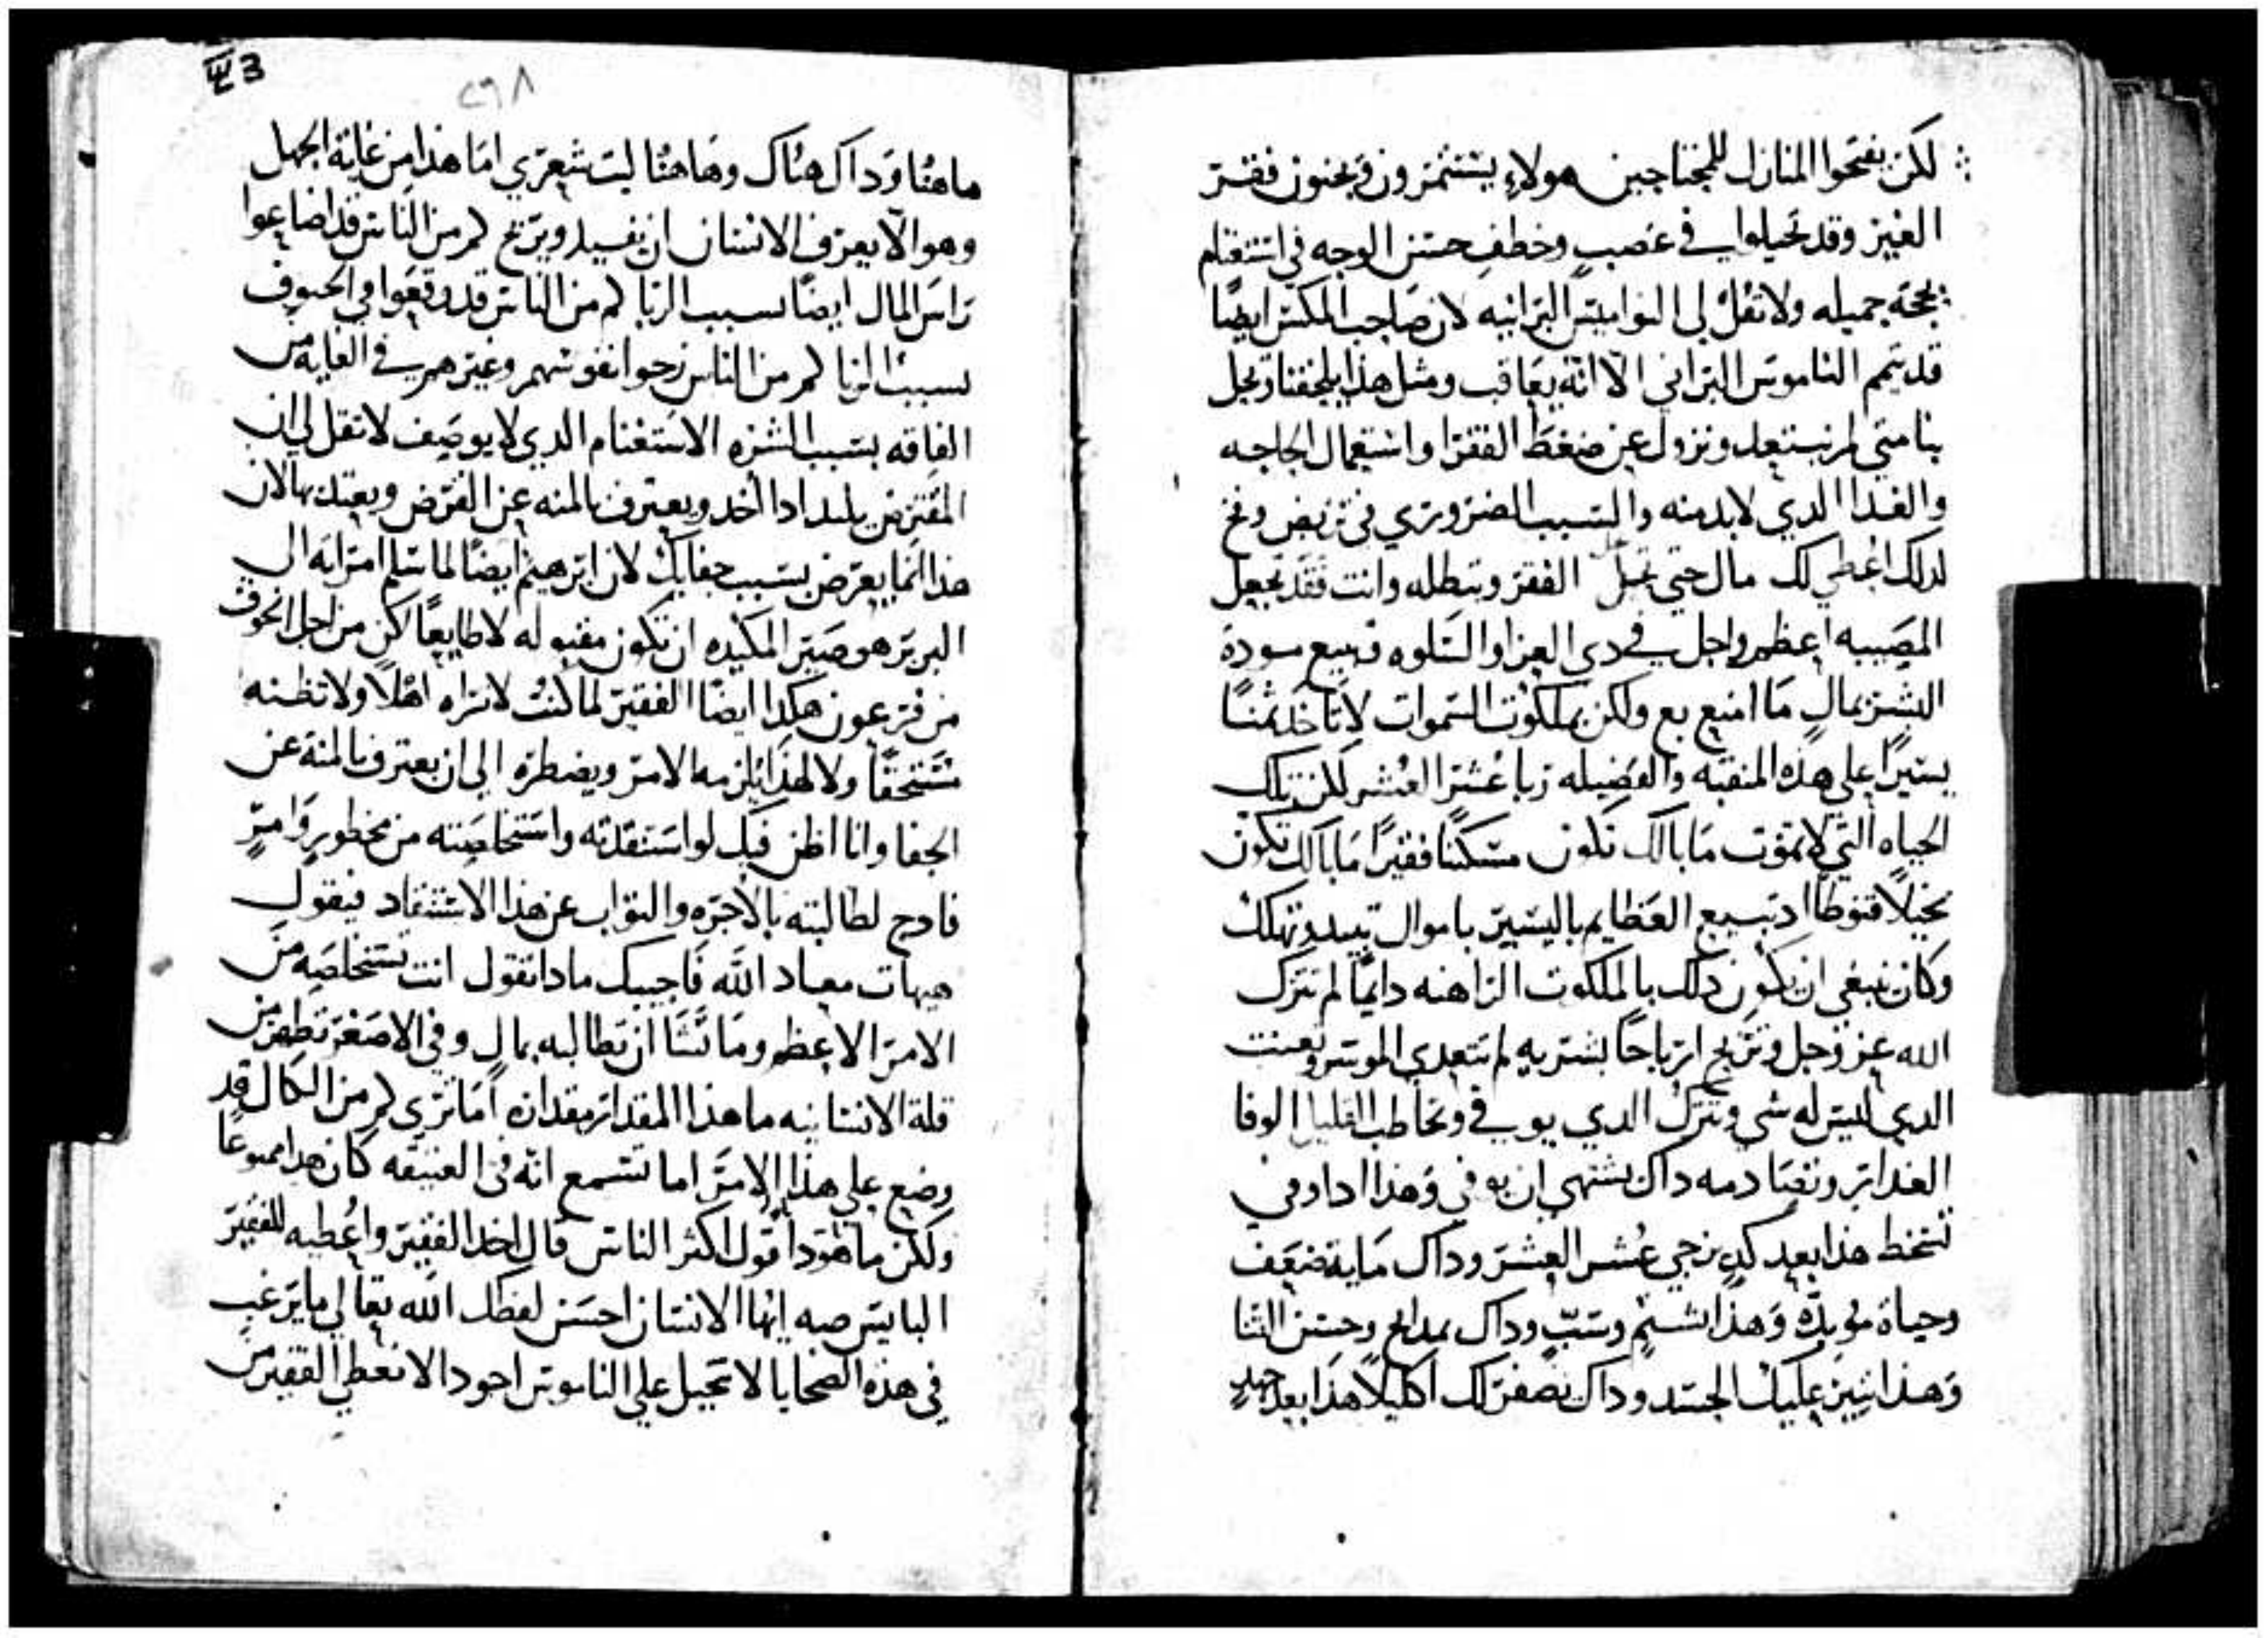 لكن يفتحوا المنازل للمحتاجين هولاءِ يستثمرون ويجنون فقر
الغير وقد تحيلوا في غصبٍ وخطفِ حسن الوجه في استغنام
بحجة جميله ولا تقل لي النواميس البرانيه لان صاحب المكس ايضًا
قد يتمم الناموس البراني الا انه يعاقب ومثل هذا يلحقنا ويحل
بنا متي لم نبتعد ونزول عن ضغط الفقرا واستعمال الحاجه
والغدا الدي لابد منه والسبب الضروري في تربص وربح
لدلك اعطي لك مال حتي تحل الفقر وتبطله وانت فقد تجعل
المصيبه اعظم واجل في دي العزا والسلوه تبيع مودة
البشر بمالٍ ما امنع بع ولكن بملكوت السموات لا تاخد ثمنًا
يسيرًا علي هذه المنقبه والفضيله ربا عُشر العُشر لكن تلك
الحياه التي لا تموت ما بالك تكون مسكنًا فقيرًا ما بالك تكون
بخيلًا قنوطًا اد تبيع العظايم باليسير باموال تبيد وتهلك
وكان ينبغي ان يكون دلك بالملكوت الراهنه دايمًا لم تترك
الله عز وجل وتربح ارباحًا بشريه لم تتعدي الموسر وتعنت
الدي ليس له شي وتترك الدي يوفي وتخاطب القليل الوفا
الغدار وتصادمه داك يشتهي ان يوفي وهذا ادا وفي
تسخط هذا بعد كدٍ يزجي عُشر العشر وداك ماية ضعف
وحياة موبدّه وهذا بشتمٍ وسبٍّ وداك بمدايح وحسن الثنا
وهذا يثير عليك الحسد وداك يضفر لك اكليلًا هذا بعد جهدٍ
٢٩٨
ماهنا وداك هناك وهاهنا ليت شعري اما هذا من غاية الجهل
وهو الا يعرف الانسان ان يفيد ويربح كم من الناس قد اضاعوا
راس المال ايضًا بسبب الربا كم من الناس قد وقعوا في الحتوف
بسبب الربا كم من الناس زجوا نفوسهم وغيرهم في الغايه من
الفاقه بسبب الشره الاستغنام الدي لا يوصف لا تقل لي ان
المقترض يلتد ادا اخد ويعترف بالمنه عن القرض ويعتد بها لان
هذا انما يعرض بسبب جفايك لان ابرهيم ايضًا لما سلم امراته الي
البربر هو صير المكيده ان تكون مقبوله لا طايعًا لكن من اجل الخوف
من فرعون هكدا ايضًا الفقير لما كنت لا تراه اهلًا ولا تظنه
مستحقًا ولا لهذا يلزمه الامر ويضطره الي ان يعترف بالمنة عن
الجفا وانا اظن فيك لو استنقدته واستخلصته من محظورٍ وامرٍ
فادح لطالبته بالاجره والثواب عن هذا الاستنقاد فيقول
هيهات معاد الله فاجيبك مادا تقول انت تستخلصه من
الامر الاعظم وما تشا ان تطالبه بمالٍ وفي الاصغر تظهر من
قلة الانسانيه ما هذا المقدار مقداره اما تري كم من النكال قد
وضع علي هذا الامر اما تسمع انه في العتيقه كان هذا ممنوعًا
ولكن ما هو دا قول اكثر الناس قال اخد الفقير واعطيه للفقير
البايس صه ايها الانسان احسن لفظك الله تعالي ما يرغب
في هذه الضحايا لا تحيل علي الناموس اجود الا تعطي الفقير من